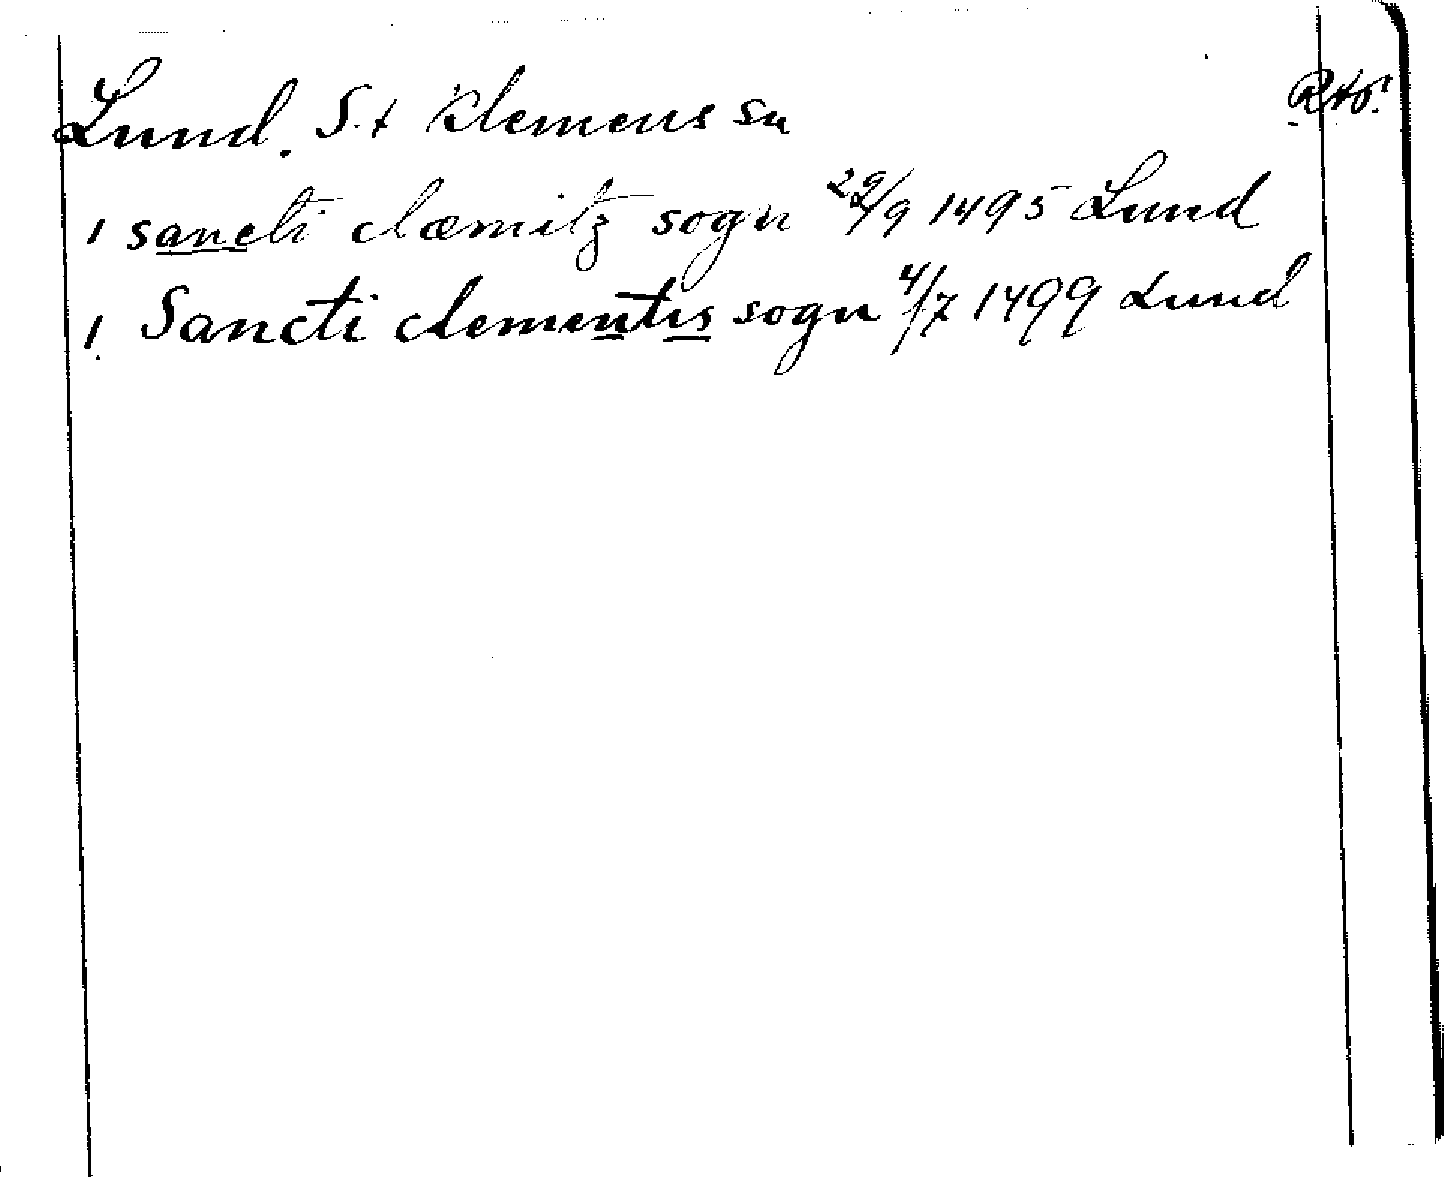 Lund. S:t Klemens sn
1 sancti clæmitz sogn 29/9 1495 Lund
1 Sancti clementis sogn 4/7 1499 Lund